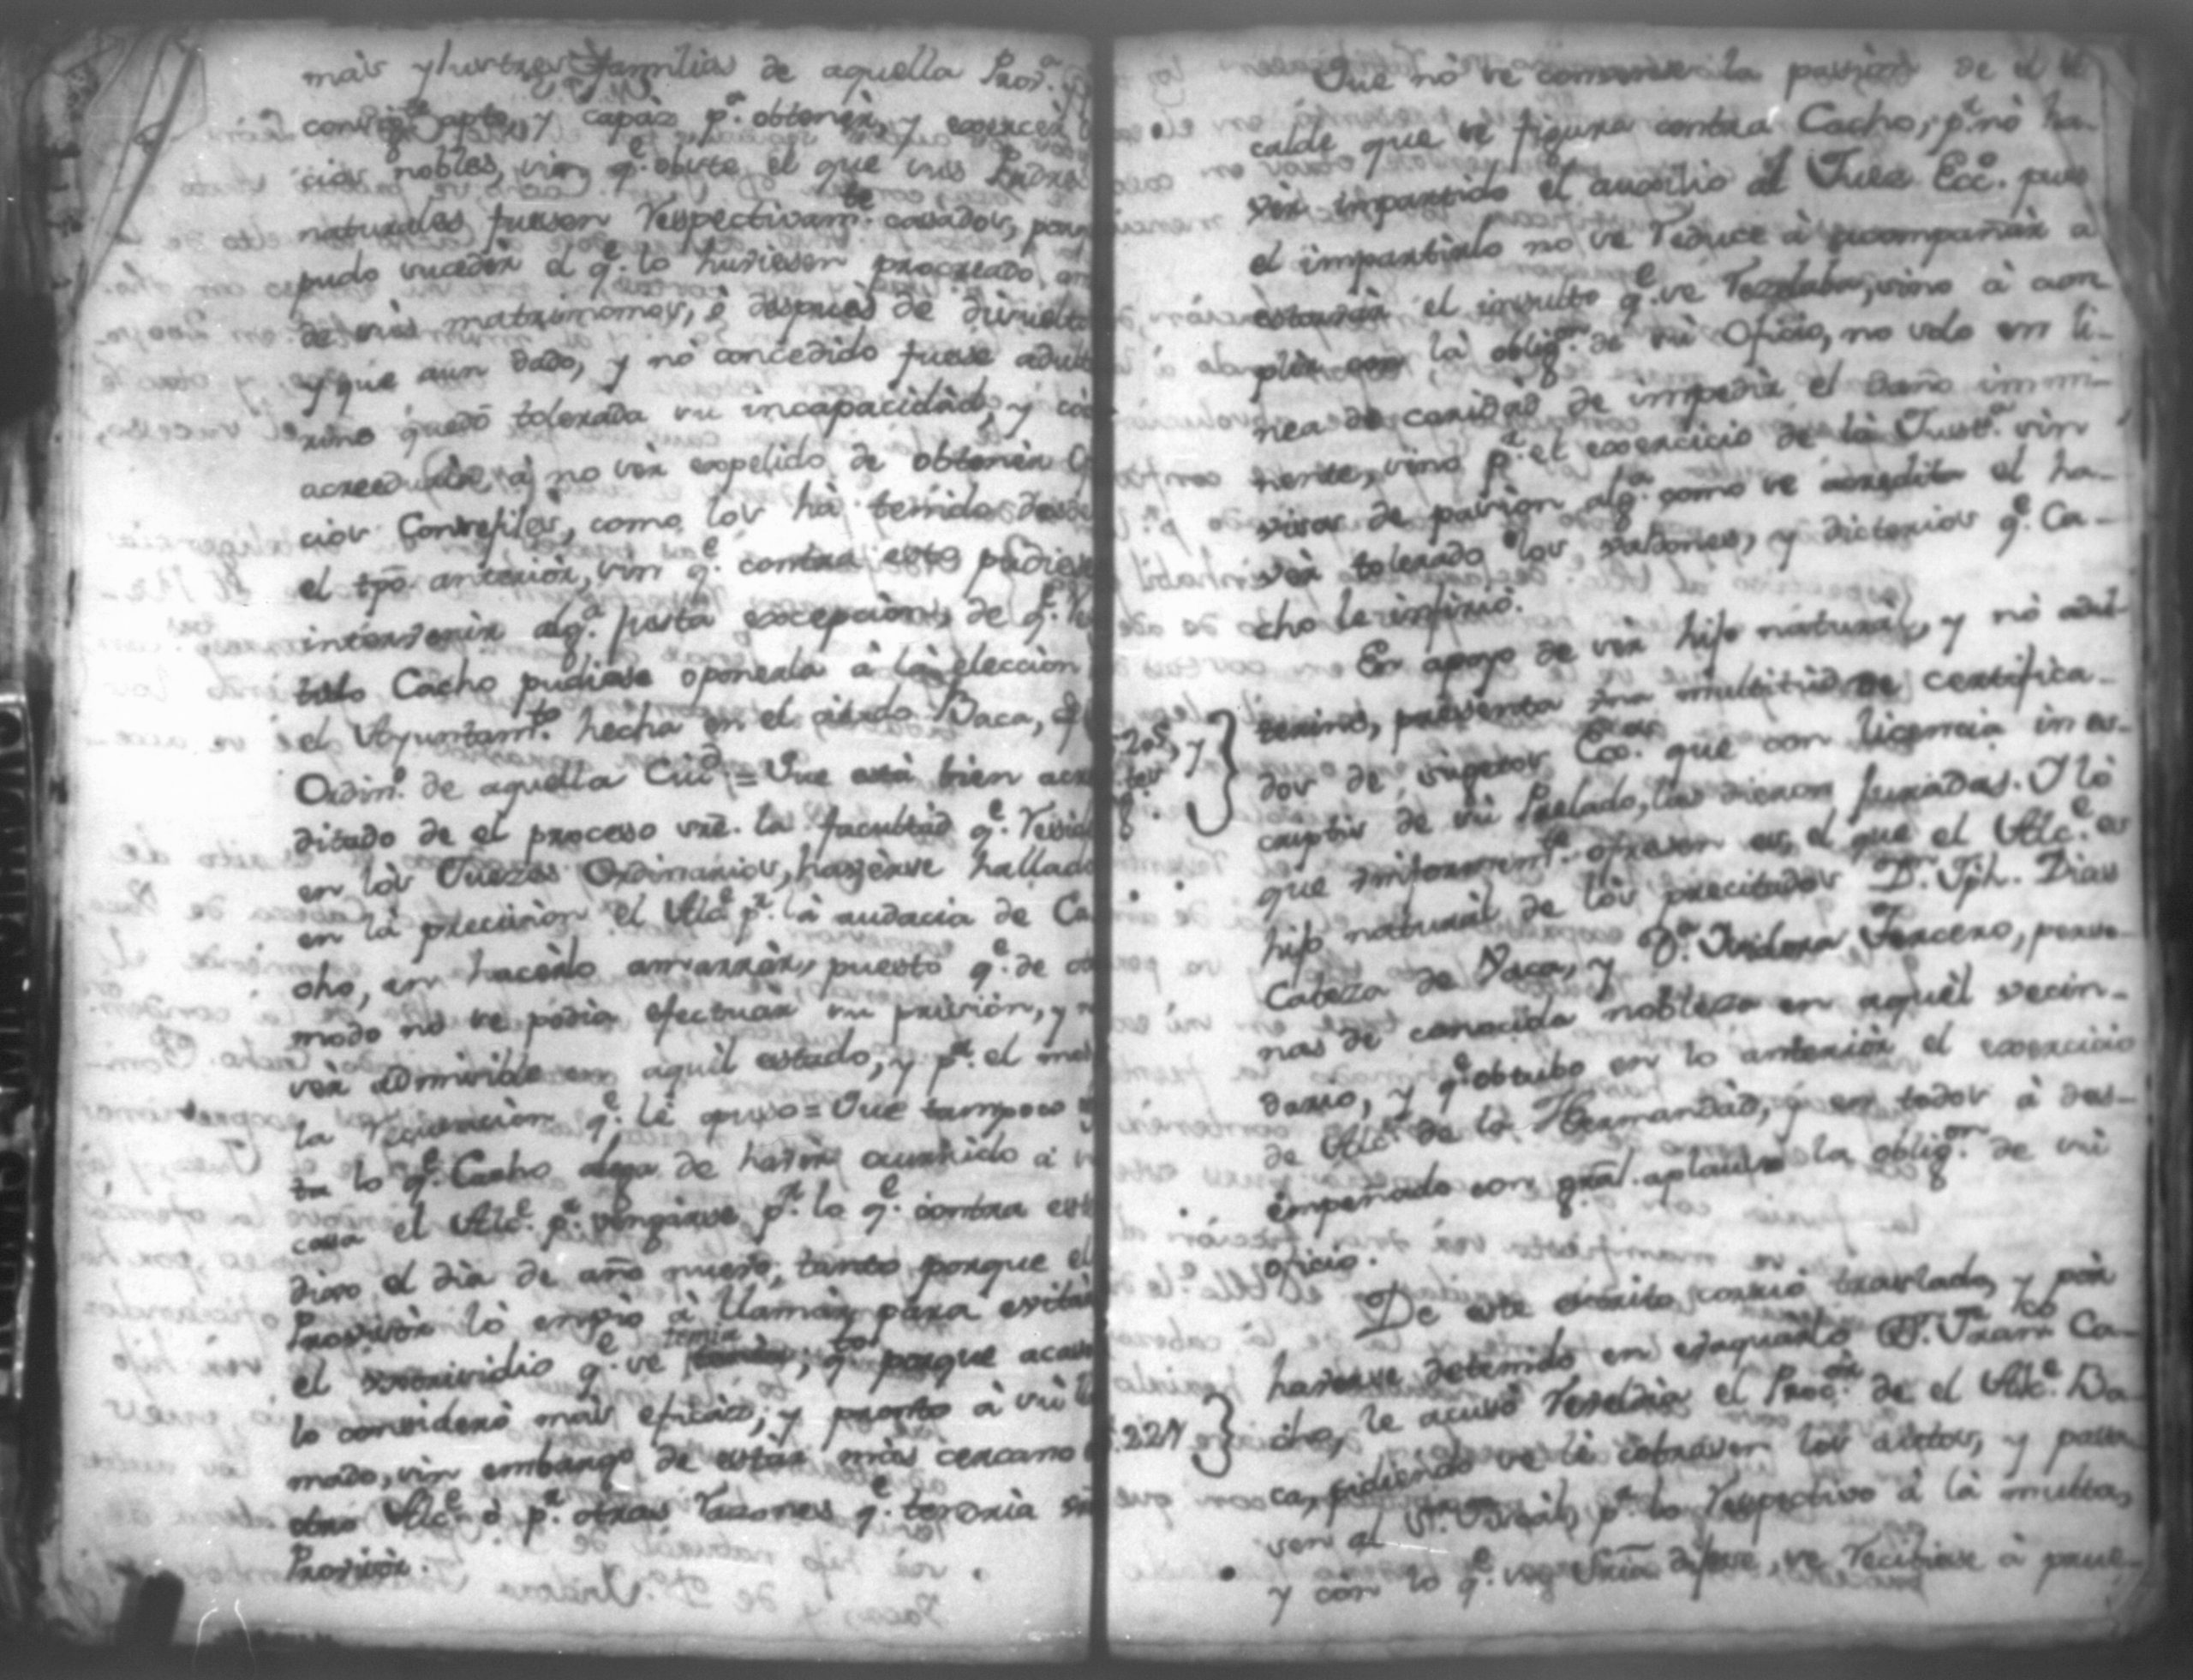 más ylustres familias de aquella Prov.ª
conseq.te apto, y capàz p.ª obtenèr, y exercèr
cios nobles, sin q.e obste el que sus Padres
naturales fuesen respectivam.te casados, porq
pudo sucedèr el q.e lo huviesen procreado an
de sus matrimonios, ò despuès de disuelto
y que aun dado, y nò concedido fuese adult
rino quedò tolerada su incapacidàd, y cò
acreedòr à no sèr expelido de obtenèr O
cios Consegiles, como los hà tenido desde
el tpô. anteriòr, sin q.e contra esto pudiese
intervenìr alg.ª justa excepciòn, de q.e
Cacho pudiese oponerla à la elecciòn
el Ayuntam.to hecha en el citado Baca, 
Ordin.º de aquella Ciu.d = Que està bien acre
ditado de el proceso sre. la facultàd q.e resid
en los Juezes Ordinarios, haverse hallado
en la precisiòn el Alc.e p.r la audacia de Ca
cho, en hacerlo amarràr, puesto q.e de ot
modo nò se podìa efectuar su prisiòn, y n
sèr admisible en aquèl estado, y p.r el mes
la recusaciòn q.e le puso = Que tampoco
lo q.e Cacho alega de havèr ocurrido à s
casa el Alc.e p.ª vengarse p.r lo q.e contra est
dixo el dìa de año nuevo, tanto porque el
Provisòr lò enviò à llamàr para evitàr
el q.e se temìa, q.to porque acaso
lo considerò màs eficàz, y pronto à sù lla
mado, sin embargo de estàr màs cercano
otro Alc.e ò p.r otras razones q.e tendrìa
Provisòr.
Que nò se comprueva la pasiòn de el Al
calde que se figura contra Cacho, p.r nò ha
vèr impartido el auxilio al Juez Ecc.º pues
el impartirlo no se reduce à acompañàr a
estorvàr el insulto q.e se rezelaba, sino à cum
plìr con la oblig.on de su Oficio, no solo en li-
nea de caridàd de impedìr el daño immi-
nente, sino p.r el exercicio de la Just.ª sin
visos de pasiòn alg.ª como se acredita el ha-
vèr tolerado los baldones, y dicterios q.e Ca-
cho le infiriò.
En apoyo de sèr hijo naturàl, y nò adul-
205, y
terino, presenta una multitùd de certifica-
dos de sugetos Ecc.cos que con licencia in es-
criptis de sù Prelado, las dieron juradas. Y lò
que uniformem.te ofrecen es, el que el Alc.e es
hijo naturàl de los precitados D.n Jph. Dias
Cabeza de Vaca, y D.ª Isidora Tercero, perso-
nas de conocida nobleza en aquèl vecin-
dario, y q.e obtubo en lo anteriòr el exercicio
de Alc.e de la Hermandàd, y en todos à des-
empeñado con gràl. aplauso la oblig.on de sù
oficio.
De este escrito corriò traslado, y pòr
haverse detenido en evaquarlo D.n Fran.co Ca-
221
cho, le acusò reveldìa el Proc.òr de el Alc.e Ba-
ca, pidiendo se le cobrasen los autos, y pasa
sen al S.r Fiscàl, p.r lo respectivo à la multa,
y còn lo q.e su Srìa. dixese, se recibiese à prue-